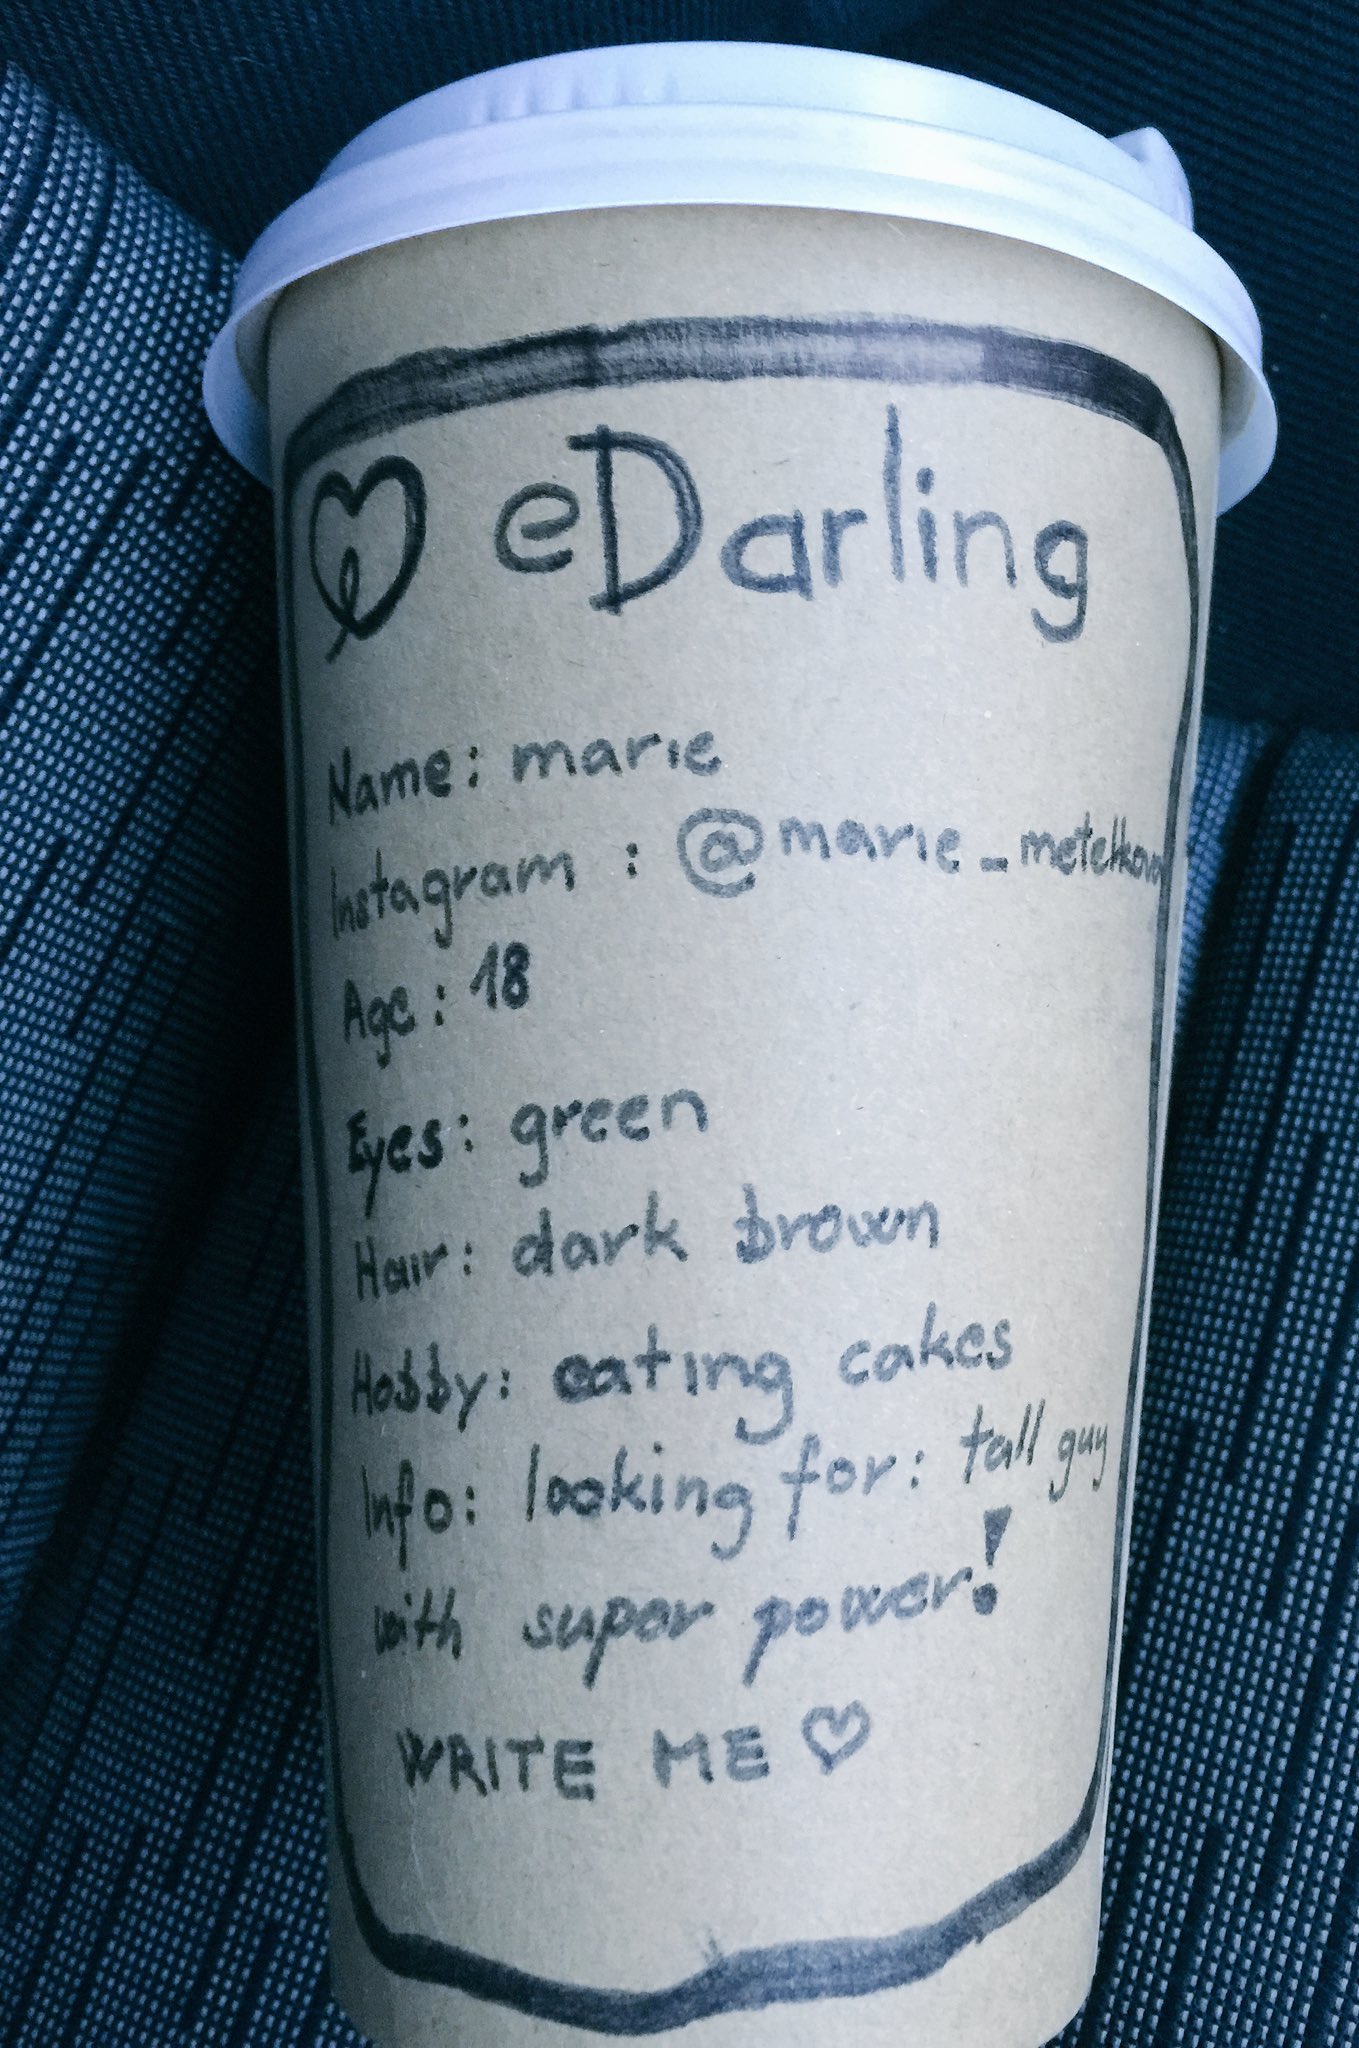 eDarling
Name: marie
Instagram : @marie_metelkova
Age: 18
Eyes: green
Hair: dark brown
Hobby: eating cakes
Info: looking for: tall guy
with super power!
WRITE ME ♡